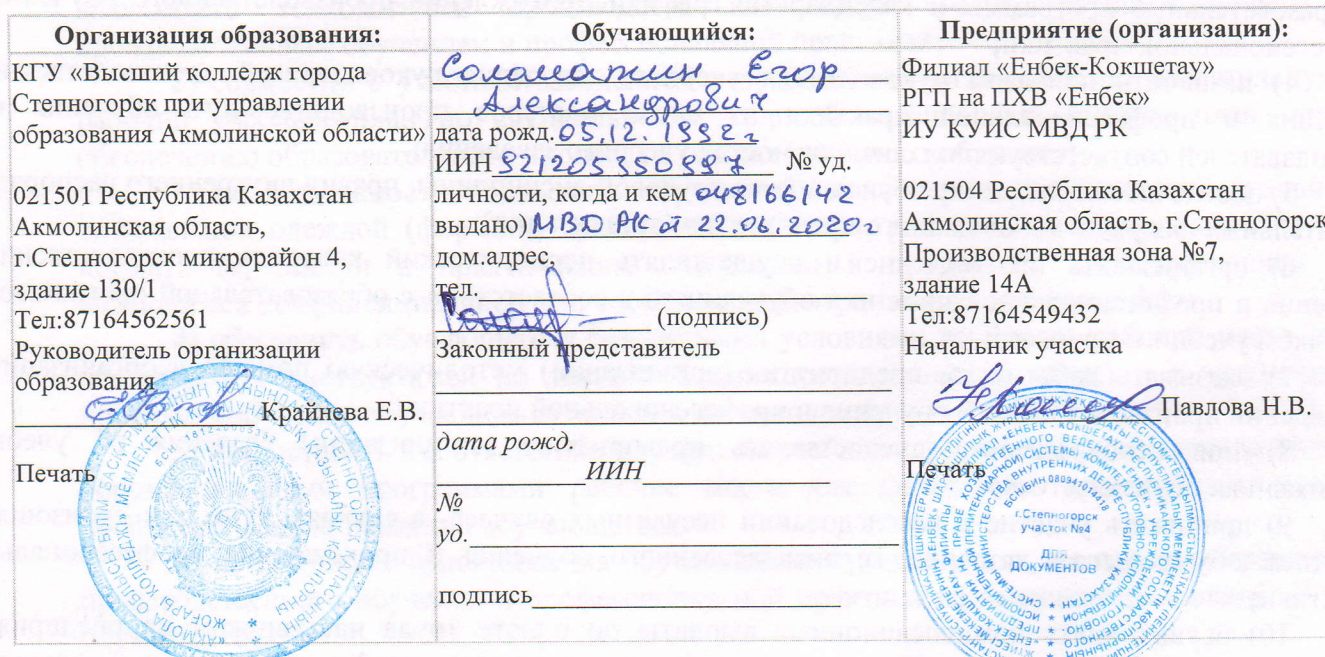 Организация образования:
КГУ «Высший колледж города
Степногорск при управлении
образования Акмолинской области»
021501 Республика Казахстан
Акмолинская область,
г.Степногорск микрорайон 4,
здание 130/1
Тел:87164562561
Руководитель организации
образования
Крайнева Е.В.
Печать
Обучающийся:
Соломатин Егор
Александрович
дата рожд. 05.12.1992г
ИИН 921205350997 № уд.
личности, когда и кем 048166142
выдано) МВД РК от 22.06.2020г
дом.адрес,
тел.
(подпись)
Законный представитель
дата рожд.
ИИН
№
уд.
подпись
Предприятие (организация):
Филиал «Енбек-Кокшетау»
РГП на ПХВ «Енбек»
ИУ КУИС МВД РК
021504 Республика Казахстан
Акмолинская область, г.Степногорск
Производственная зона №7,
здание 14А
Тел:87164549432
Начальник участка
Павлова Н.В.
Печать
г.Степногорск
участок №4
ДЛЯ
ДОКУМЕНТОВ